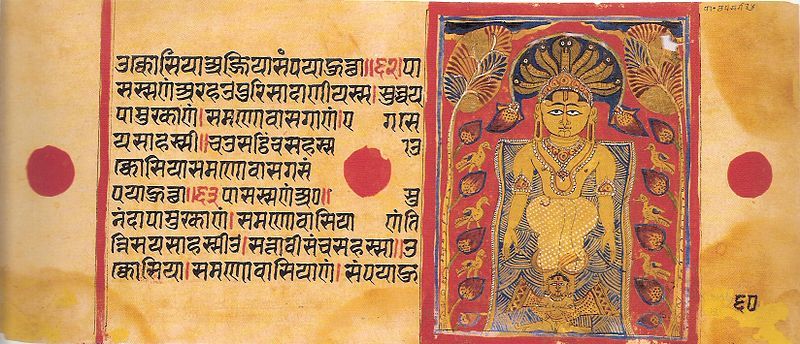 उक्कोसिया अज्जिया संपया हुत्था॥६२॥पा
सस्सणं अरहउ पुरिसादाणीयस्स। सुव्वय
पामुरकाणं। समणोवासगाणं। ए गा स
यसाहस्सी॥ चउसट्ठिं च सहस्सा उ
क्कोसिया समणोवासगसं
पया हुत्था॥६३ पासस्सणं अ०॥ सु
नंदापामुरकाणं। समणोवासिया णं ति
न्निसयसाहस्सीउ। सत्तावीसं च सहस्सा॥ उ
क्कोसिया। समणोवासियाणं। संपया हु
६०